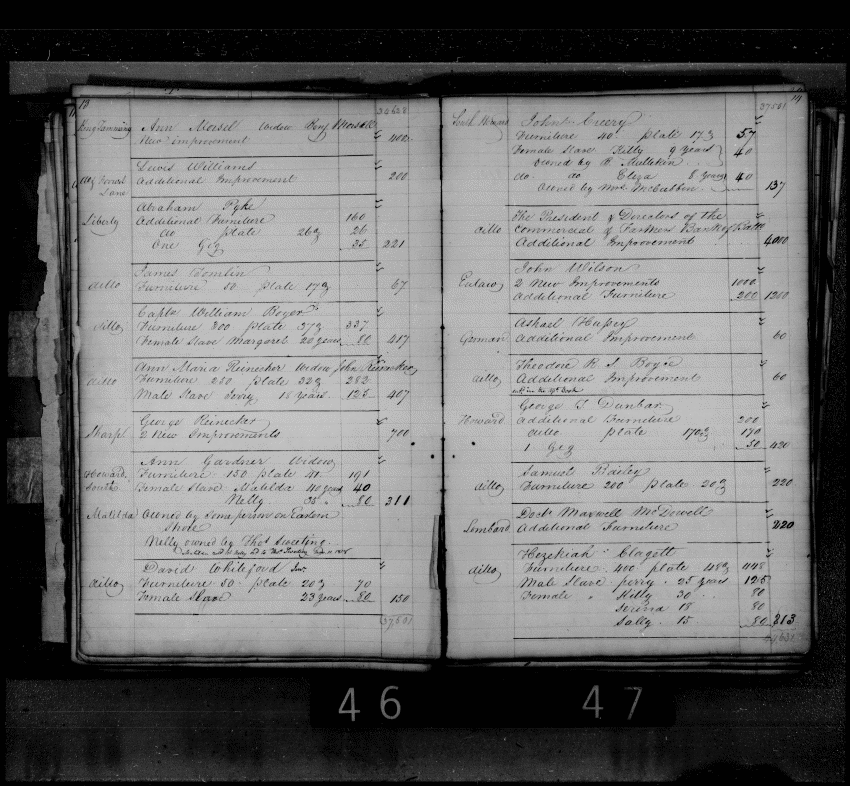 18
34628
Ann Morsel Widow Benj Morsell
New improvement 400
Lewis Williams
Additional Improvement 200
Abraham Pyke
Liberty Additional Furniture 160
do plate 26 26
One Gig 35 221
James Tomlin
ditto Furniture 50 plate 17 67
Capt William Boyer
ditto Furniture 300 plate 37 337
Female Slave Margaret 20 years 80 417
Ann Maria Reinecker Widow John Reinecker
ditto Furniture 250 plate 32 282
Male Slave Perry 18 years 125 407
George Reinecker
Sharp 2 New Improvements 700
Ann Gardner Widow
Howard Furniture 150 plate 41 191
South Female Slave Matilda 40 years 40
Nelly 35 " 80 311
Matilda Owned by some person on Eastern
Shore
Nelly owned by Thos Sweeting
David Whiteford Jnr
ditto Furniture 50 plate 20 70
Female Slave 23 years 80 150
37501
19
37501
South Howard John Creery
Furniture 40 plate 17 57
Female Slave Kitty 9 years 40
owned by R Mullikin
do do Eliza 8 years 40
owned by Mrs McCubbin 137
The President & Directors of the
ditto Commercial & Farmers Bank of Balto
Additional Improvement 4000
John Wilson
Eutaw 2 New Improvements 1000
Additional Furniture 200 1200
Ashael Hussy
German Additional Improvement 60
Theodore R. S. Boyce
ditto Additional Improvement 60
George T Dunbar
Howard Additional Furniture 200
ditto plate 170 170
1 Gig 50 420
Samuel Baisey
ditto Furniture 200 plate 20 220
Doct Maxwell McDowell
Lombard Additional Furniture 220
Hezekiah Clagett
ditto Furniture 400 plate 48 448
Male Slave perry 25 years 125
Female " Kitty 30 80
Serena 18 80
Sally 15 80 813
46
47